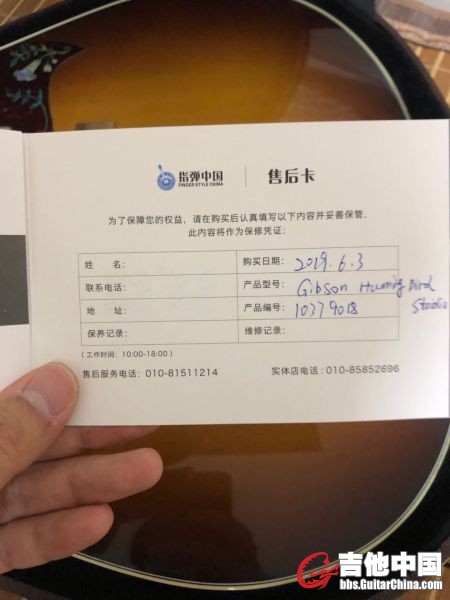 指弹中国
FINGER STYLE CHINA
售后卡
为了保障您的权益，请在购买后认真填写以下内容并妥善保管。
此内容将作为保修凭证：
姓 名： 购买日期： 2019.6.3
联系电话： 产品型号： Gibson Huming Bird
地 址： 产品编号： 10379018 Studio
保养记录： 维修记录：
(工作时间：10:00-18:00)
售后服务电话：010-81511214 实体店电话：010-85852696
吉他中国
bbs.GuitarChina.com